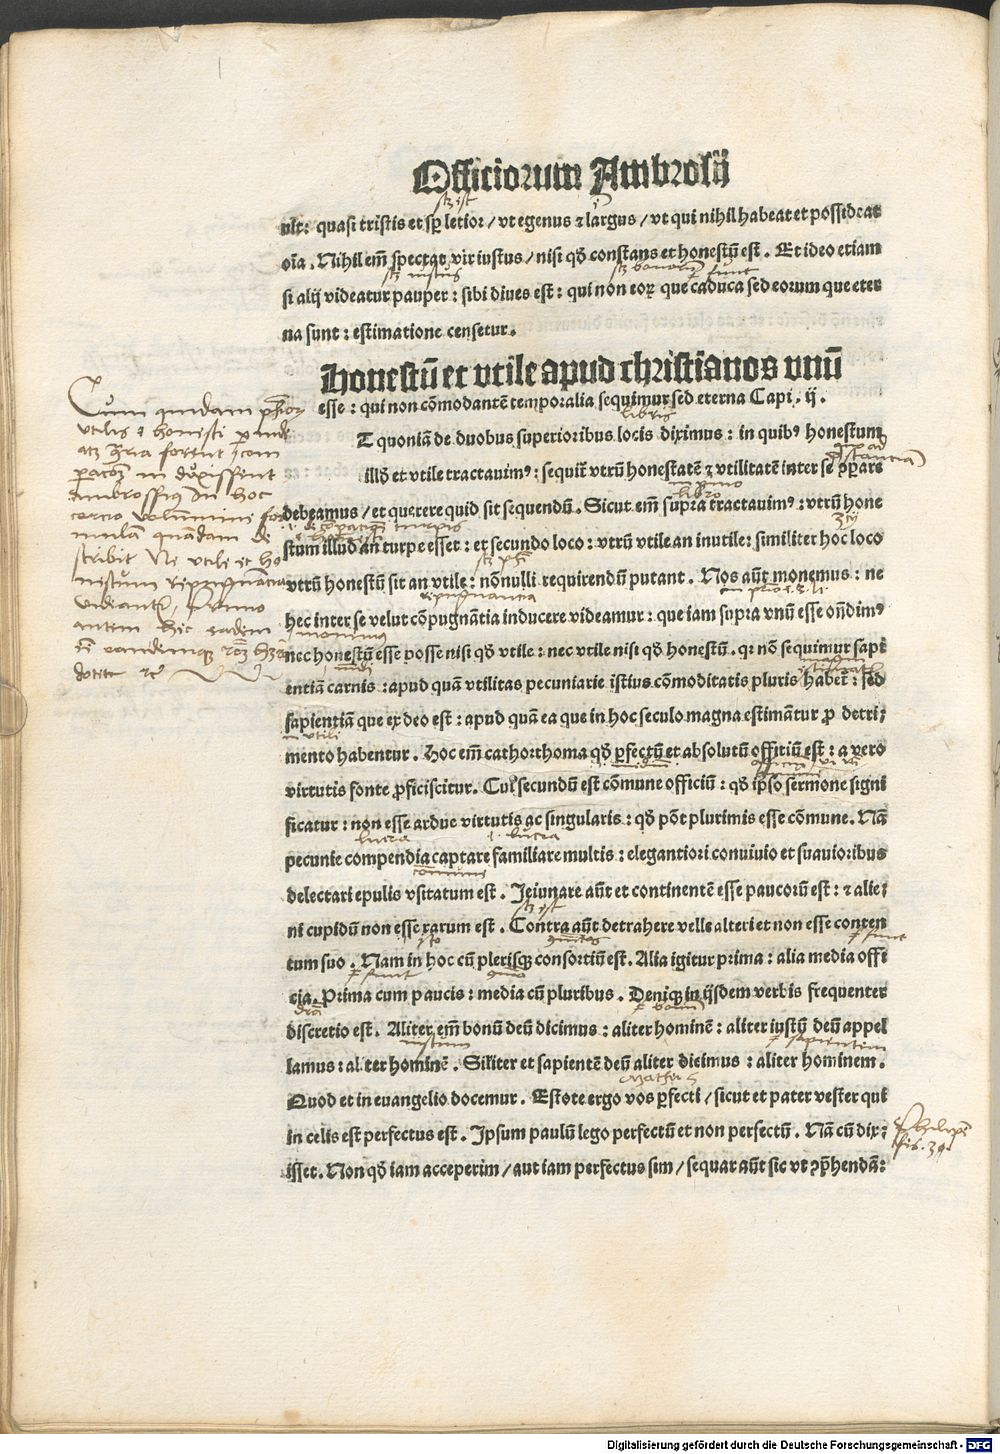 Officiorum Ambrosij
ult: quasi tristis et sꝑ letior / vt egenus ⁊ largus / vt qui nihil habeat et possideat
oīa. Nihil em̄ spectat vir iustus / nisi qđ constans et honestū est. Et ideo etiam
si alij videatur pauper: sibi diues est: qui non eoꝝ que caduca sed eorum que eter
na sunt: estimatione censetur.
Honestū et vtile apud christianos vnū
esse: qui non cōmodantē temporalia sequimur sed eterna Capi. ij.
T quoniā de duobus superioribus locis diximus: in quibꝰ honestum
illđ et vtile tractauimꝰ: sequit̄ vtrū honestatē ⁊ vtilitatē inter se ꝯparare
debeamus / et querere quid sit sequendū. Sicut em̄ supra tractauimꝰ: vtrū hone
stum illud an turpe esset: et secundo loco: vtrū vtile an inutile: similiter hoc loco
vtrū honestū sit an vtile: nōnulli requirendū putant. Nos aūt monemus: ne
hec inter se velut cōpugnātia inducere videamur: que iam supra vnū esse on̄dimꝰ
nec honestū esse posse nisi qđ vtile: nec vtile nisi qđ honestū. qꝛ nō sequimur sapi
entiā carnis: apud quā vtilitas pecuniarie istius cōmoditatis pluris habet̄: sed
sapientiā que ex deo est: apud quā ea que in hoc seculo magna estimātur ꝓ detri;
mento habentur. Hoc em̄ cathorthoma qđ ꝑfectū et absolutū offitiū est: a vero
virtutis fonte ꝓficiscitur. Cui secundū est cōmune officiū: qđ ipso sermone signi
ficatur: non esse ardue virtutis ac singularis: qđ pōt plurimis esse cōmune. Nā
pecunie compendia captare familiare multis: elegantiori conuiuio et suauioribus
delectari epulis vsitatum est. Jeiunare aūt et continentē esse paucorū est: ⁊ alie;
ni cupidū non esse rarum est. Contra aūt detrahere velle alteri et non esse conten
tum suo. Nam in hoc cū plerisqꝫ consortiū est. Alia igitur prima: alia media offi
cia. Prima cum paucis: media cū pluribus. Deniqꝫ in ijsdem verbis frequenter
discretio est. Aliter em̄ bonū deū dicimus: aliter hominē: aliter iustū deū appel
lamus: aliter hominē. Siliter et sapientē deū aliter dicimus: aliter hominem.
Quod et in euangelio docemur. Estote ergo vos ꝑfecti / sicut et pater vester qui
in celis est perfectus est. Ipsum paulū lego perfectū et non perfectū. Nā cū dix;
isset. Non qđ iam acceperim / aut iam perfectus sim / sequar aūt sic vt ꝯp̄hendā:
Cum quidam
vtilis ⁊ honesti
ambrossius in hoc
tercio volumini for
mulam quandam de
scribit Ne vtile et ho
nestum repugnancia
videantur, primo
autem hic eadem
libris
libro
repugnancia
monemus
mundi
inutili
lucra
i. lucra
iustum
sapientem
Mathei 5
Digitalisierung gefördert durch die Deutsche Forschungsgemeinschaft - DFG